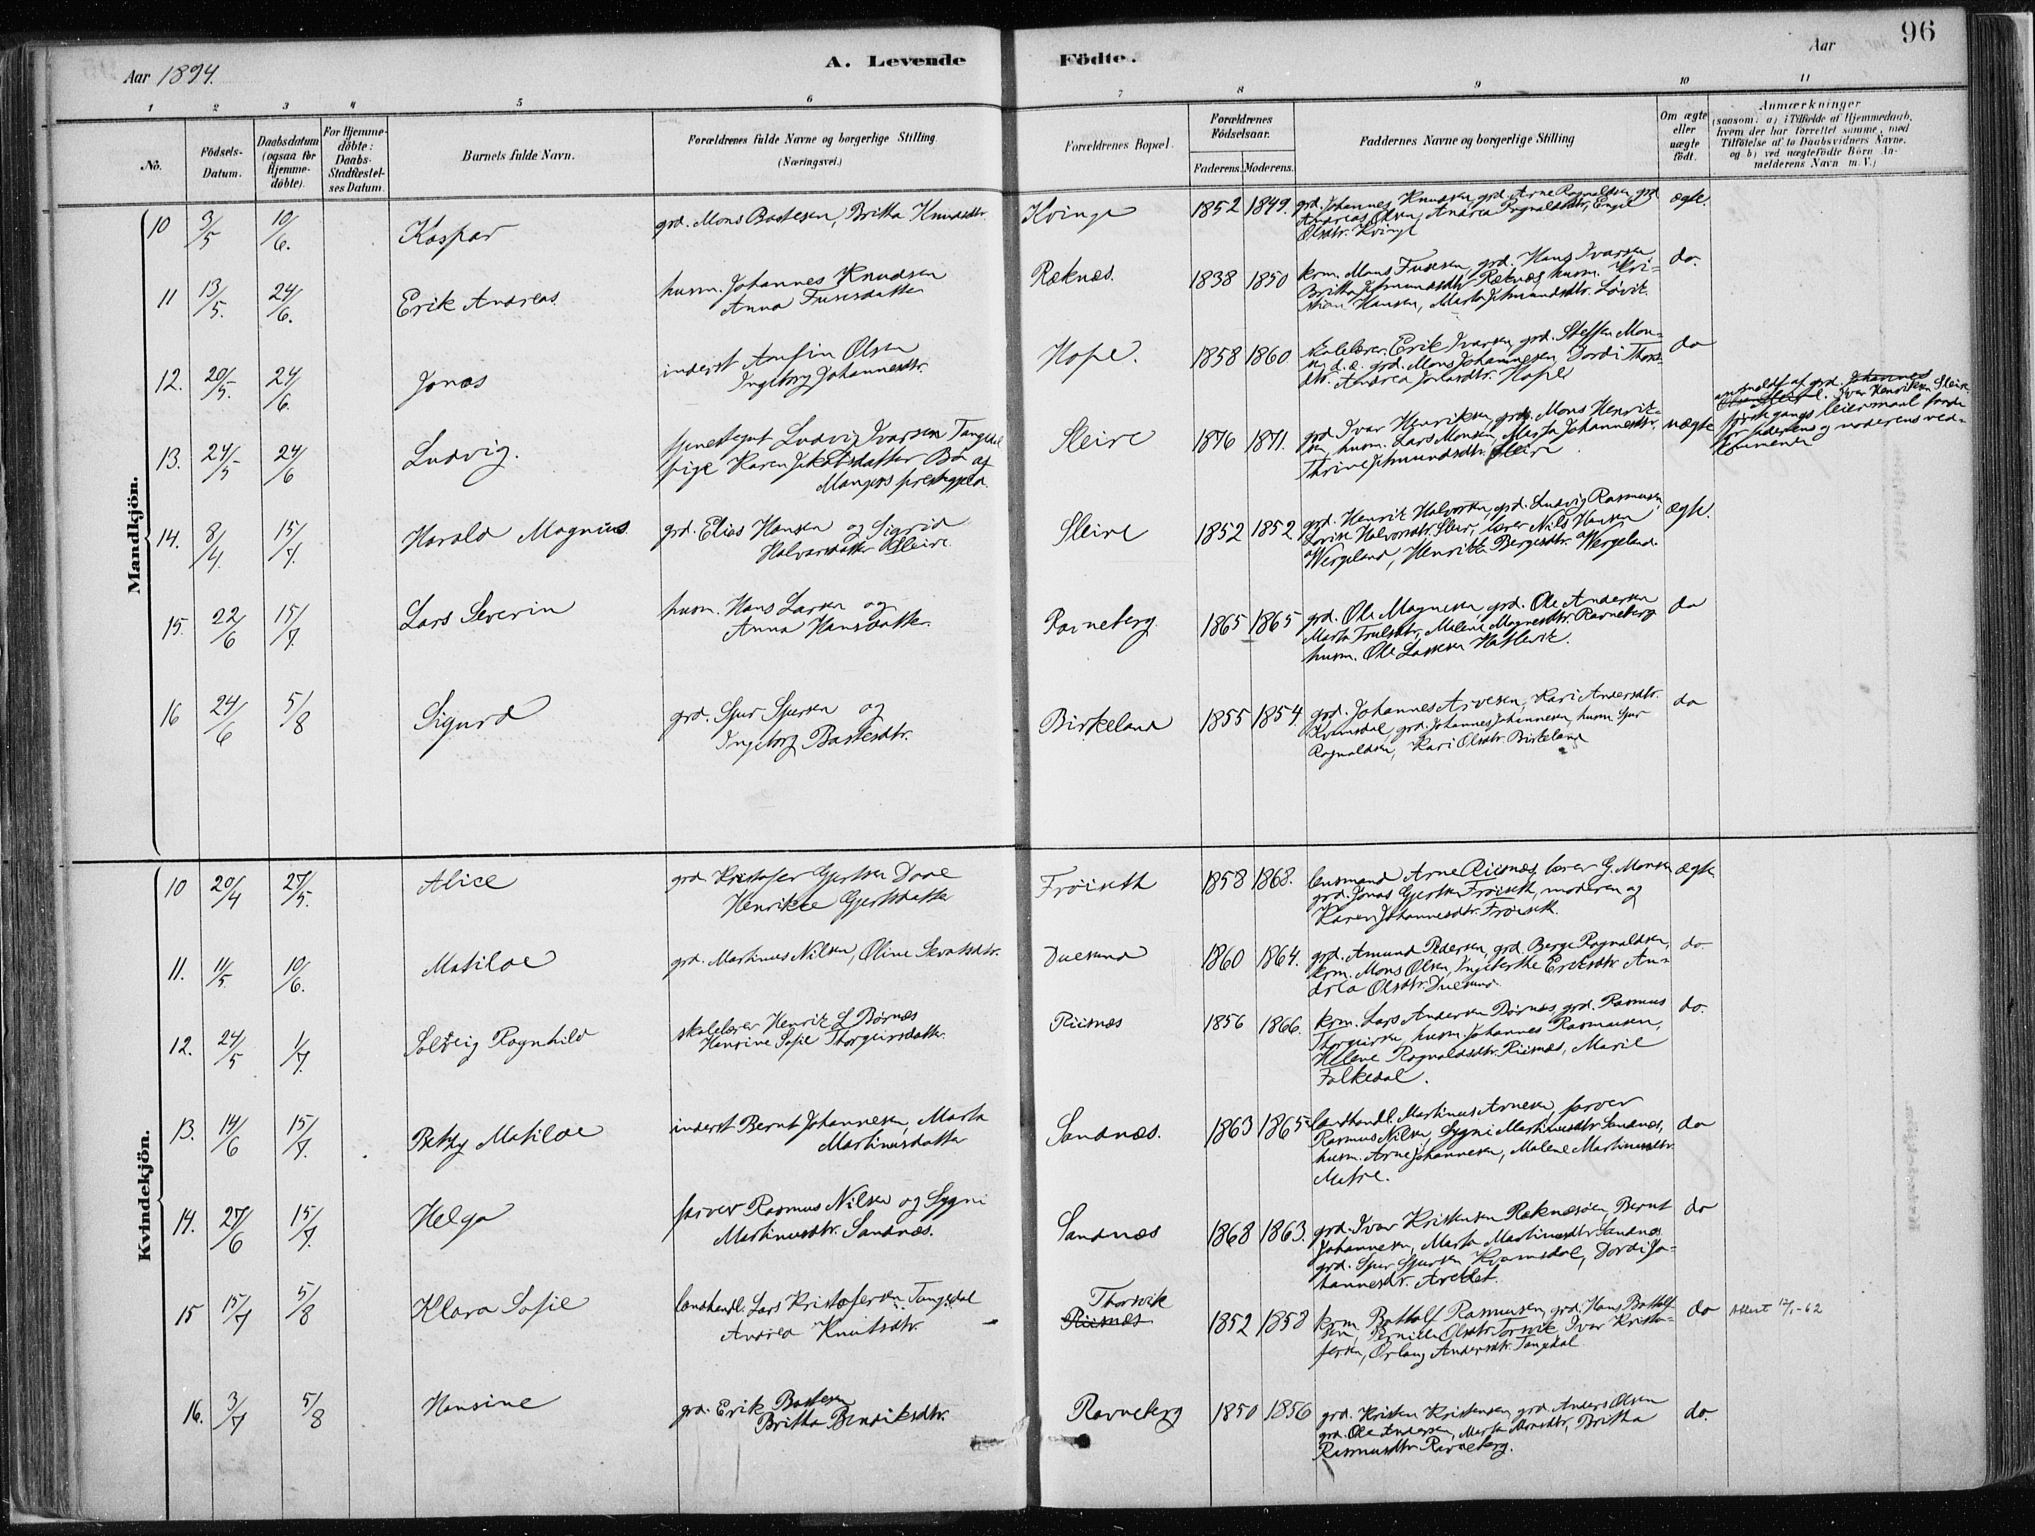 96
Aar 1894.
A. Levende Födte.
Aar
1 2 3 4 5 6 7 8 9 10 11
No.
Födsels-Datum.
Daabsdatum (ogsaa for Hjemme-döbte).
For Hjemme-döbte: Daabs-Stadfæstel-ses Datum.
Barnets fulde Navn.
Forældrenes fulde Navne og borgerlige Stilling. (Næringsvei.)
Forældrenes Bopæl.
Forældrenes Födselsaar.
Faderens. Moderens.
Faddernes Navne og borgerlige Stilling
Om ægte eller uægte födt.
Anmærkninger (saasom: a) i Tilfælde af Hjemmedaab, hvem der har forrettet samme, med Tilföielse af to Daabsvidners Navne, og b) ved uægtefödte Börn An-melderens Navn m. V.)
Mandkjön.
10 3/5 10/6. Kaspar grd. Mons Bastesen, Britta Knudsdtr. Kvinge 1852 1849. grd. Johannes Knudsen, grd. Arne Ragnaldsen, grd ægte.
Andreas Olsen, Andrea Ragnaldsdtr, Engel
Olsdtr. Kvinge
11 13/5. 24/6. Erik Andreas husm. Johannes Knudsen
Anna Fusesdatter Ræknæs. 1838 1850 krm. Mons Fusesen, grd. Hans Ivarsen, do.
Britta Amundsdtr Ræknæs, husm. Kri-
stian Hansen, Marta Amundsdtr. Løvik
12. 20/5. 24/6. Jonas inderst Anfin Olsen
Ingeborg Johannesdtr. Hope. 1858 1860 skolelærer Erik Ivarsen, grd. Steffen Mon- do
sen d. æ. grd. Mons Johannesen, Dordi Thors-
dtr. Andrea Jonasdtr. Hope
13. 24/5 24/6 Ludvig. tjenestegut Ludvig Ivarsen Tangedal
pige Karen Jakobsdatter Bø af
Mangers præstegjeld. Sleire 1876 1871. grd. Ivar Henriksen, grd. Mons Henrik- uægte
sen, husm. Lars Monsen, Marta Johannesdtr.
Thrine Amundsdtr. Sleire
anmeldt af grd. Johannes
Ivar Henriksen Sleire.
første gangs leiermaal baade
for faderens og moderens ved-
kommende
14. 8/4. 15/7. Harald Magnus grd. Elias Hansen og Sigrid
Halvorsdatter Sleire Sleire 1852 1852 grd. Henrik Halvorsen, grd. Ludvig Rasmusen, ægte.
Lovise Halvorsdtr. Sleire, lærer Nils Hansen
Wergeland, Henrikke Bergesdtr. Wergeland.
15. 22/6 15/7. Lars Severin husm. Hans Larsen og
Anna Hansdatter Ravneberg 1865 1865 grd. Ole Magnesen, grd. Ole Andersen do
Marta Trulsdtr, Malene Magnesdtr. Ravneberg
husm. Ole Lassesen Hatlevik.
16 24/6 5/8 Sigurd grd. Spur Spursen og
Ingeborg Bastesdtr. Birkeland 1855 1854. grd. Johannes Arvesen, Kari Andersdtr. do
Kvamsdal, grd. Johannes Johannesen, husm. Spur
Ragnaldsen, Kari Olsdtr. Birkeland
Kvindekjön.
10 20/4 27/5. Alice grd. Kristofer Gjertsen Daae
Henrikke Gjertsdatter Frøiseth 1858 1868. lensmand Arne Risnæs, lærer G. Monsen ægte
grd. Jonas Gjertsen Frøiseth, moderen og
Karen Johannesdtr. Frøiseth.
11. 11/5 10/6. Matilde grd. Martinus Nilsen, Oline Skratsdtr. Duesund 1860 1864. grd. Amund Pedersen, grd. Berge Ragnaldsen, do
krm. Mons Olsen, Ingeberthe Eriksdtr. An-
drea Olsdtr. Duesund.
12. 24/5 1/7. Solveig Ragnhild skolelærer Henrik L Børnæs
Hansine Sofie Thorgeirsdatter. Risnæs 1856 1866. krm. Lars Andersen Børnæs, grd. Rasmus do.
Thorgeirsen, husm. Johannes Rasmusen,
Helene Ragnaldsdtr. Risnæs, Marie
Falkedal.
13. 14/6 15/7. Betzy Matilde inderst Bernt Johannesen, Marta
Martinusdatter Sandnæs. 1863 1865 landhandl. Martinus Arnesen, farver do
Rasmus Nilsen, Sygni Martinusdtr. Sandnæs,
husm. Arne Johannesen, Malene Martinusdtr.
Matre.
14. 27/6 15/7. Helga farver Rasmus Nilsen og Sygni
Martinusdtr. Sandnæs. Sandnæs 1868 1863. grd. Ivar Kristensen Ræknæsøen, Bernt do
Johannesen, Marta Martinusdtr. Sandnæs
grd. Spur Spursen Kvamsdal, Dordi Jo-
hannesdtr.
15 15/7 5/8 Klara Sofie landhandl. Lars Kristofersen Tangedal
Andrea Knutsdtr. Thorsvik
Risnæs 1852 1858 krm. Bottolf Rasmusen, grd. Hans Bottolf- do Attest 12/1-62
sen, Pernille Olsdtr. Torsvik, Ivar Kristo-
fersen, Ørlaug Andersdtr. Tangedal
16. 3/7 5/8 Hansine grd. Erik Bastesen
Britha Bendiksdtr. Ravneberg 1850 1856 grd. Kristen Kristensen, grd. Anders Olsen do.
grd. Ole Andersen, Marta Monsdtr, Britha
Rasmusdtr. Ravneberg.